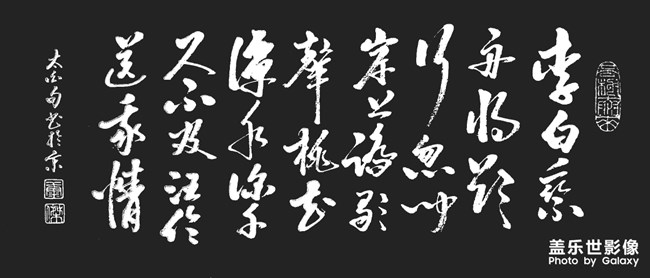 李白乘
舟将欲
行忽闻
岸上踏歌
聲桃花
潭水深千
尺不及汪伦
送我情
太白句书於京
盖乐世影像
Photo by Galaxy